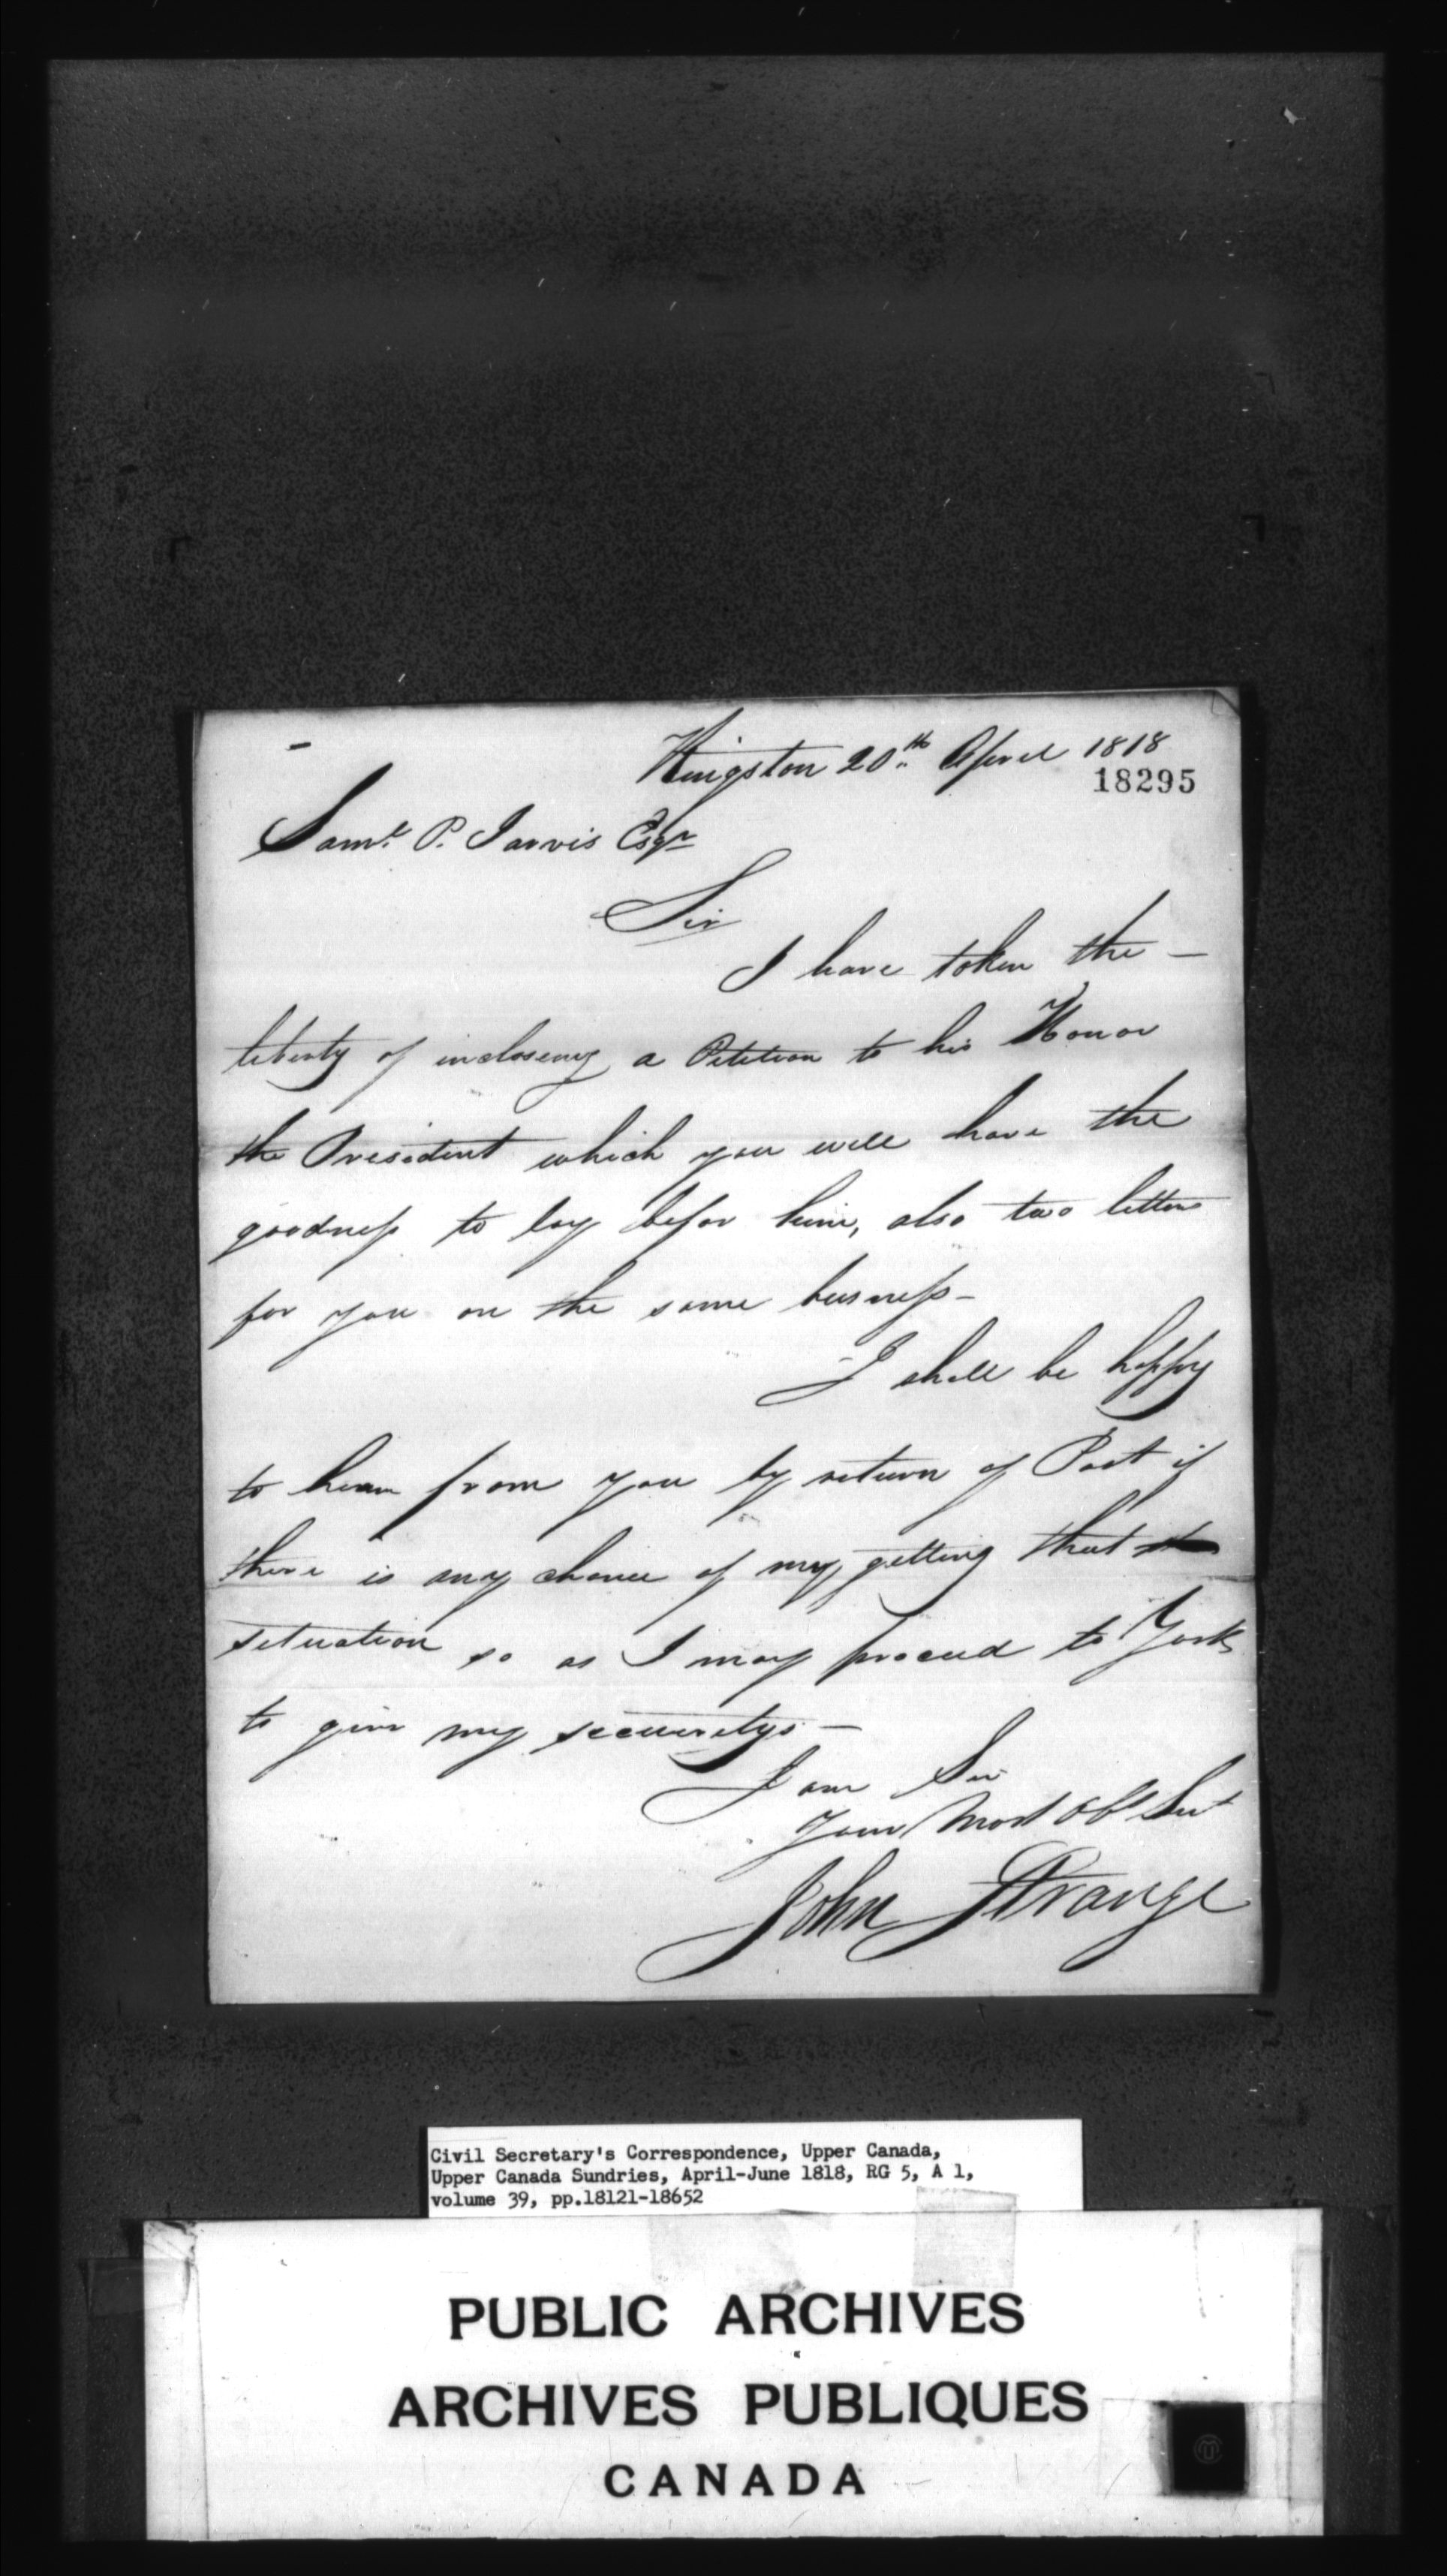 Kingston 20th April 1818
18295
Saml. P. Jarvis Esqr
Sir
I have taken the —
liberty of incloseing a Petition to his Honor
the President which you will have the
goodness to lay befor him, also two letters
for you on the same busness —
I shall be happy
to hear from you by return of Post if
there is any chance of my getting that
situation so as I may proceed to York
to give my securitys —
I am Sir
Your Most Obt Sert
John Strange
Civil Secretary's Correspondence, Upper Canada,
Upper Canada Sundries, April-June 1818, RG 5, A 1,
volume 39, pp.18121-18652
PUBLIC ARCHIVES
ARCHIVES PUBLIQUES
CANADA